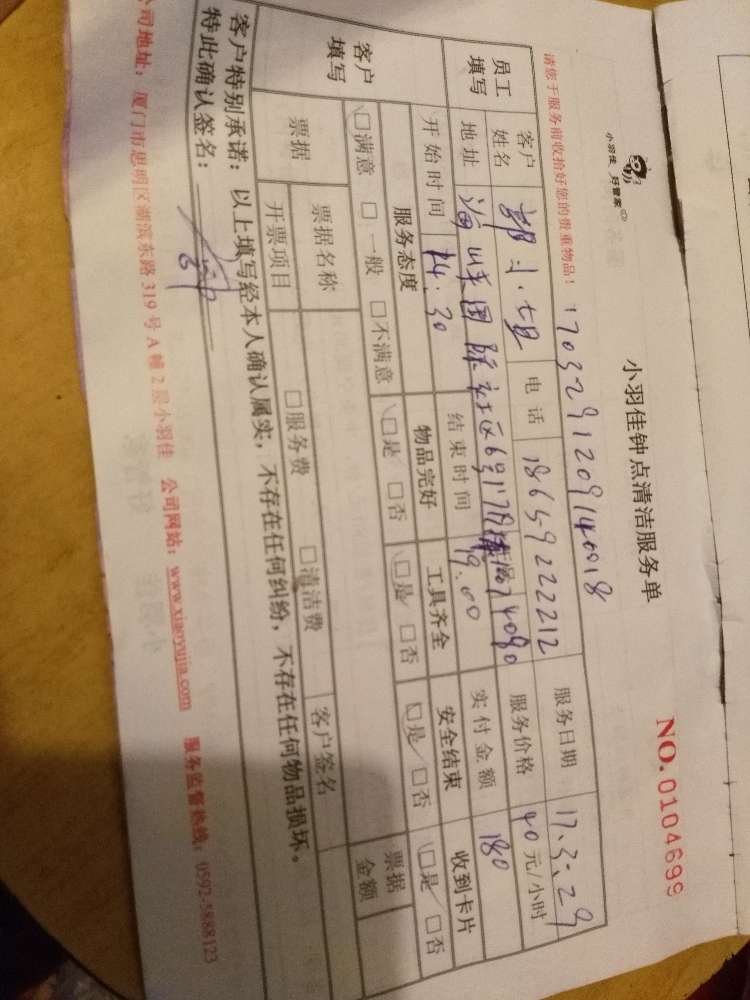 小羽佳 好管家
小羽佳钟点清洁服务单
NO. 0104699
请您于服务前收拾好您的贵重物品！
1703291209140018
员工填写
客户姓名
电话 18659222212
服务日期 17.3.29
地址
服务价格 40元/小时
开始时间 14:30
结束时间 19:00
实付金额 180
客户填写
服务态度 物品完好 工具齐全 安全结束 收到卡片
□满意 □一般 □不满意 □是 □否 □是 □否 □是 □否 □是 □否
票据
票据名称 □服务费 □清洁费
票据金额
开票项目
客户签名
客户特别承诺：以上填写经本人确认属实，不存在任何纠纷，不存在任何物品损坏。
特此确认签名：
公司地址：厦门市思明区湖滨东路319号A幢2层小羽佳 公司网站：www.xiaoyujia.com 服务监督热线：0592-5888123